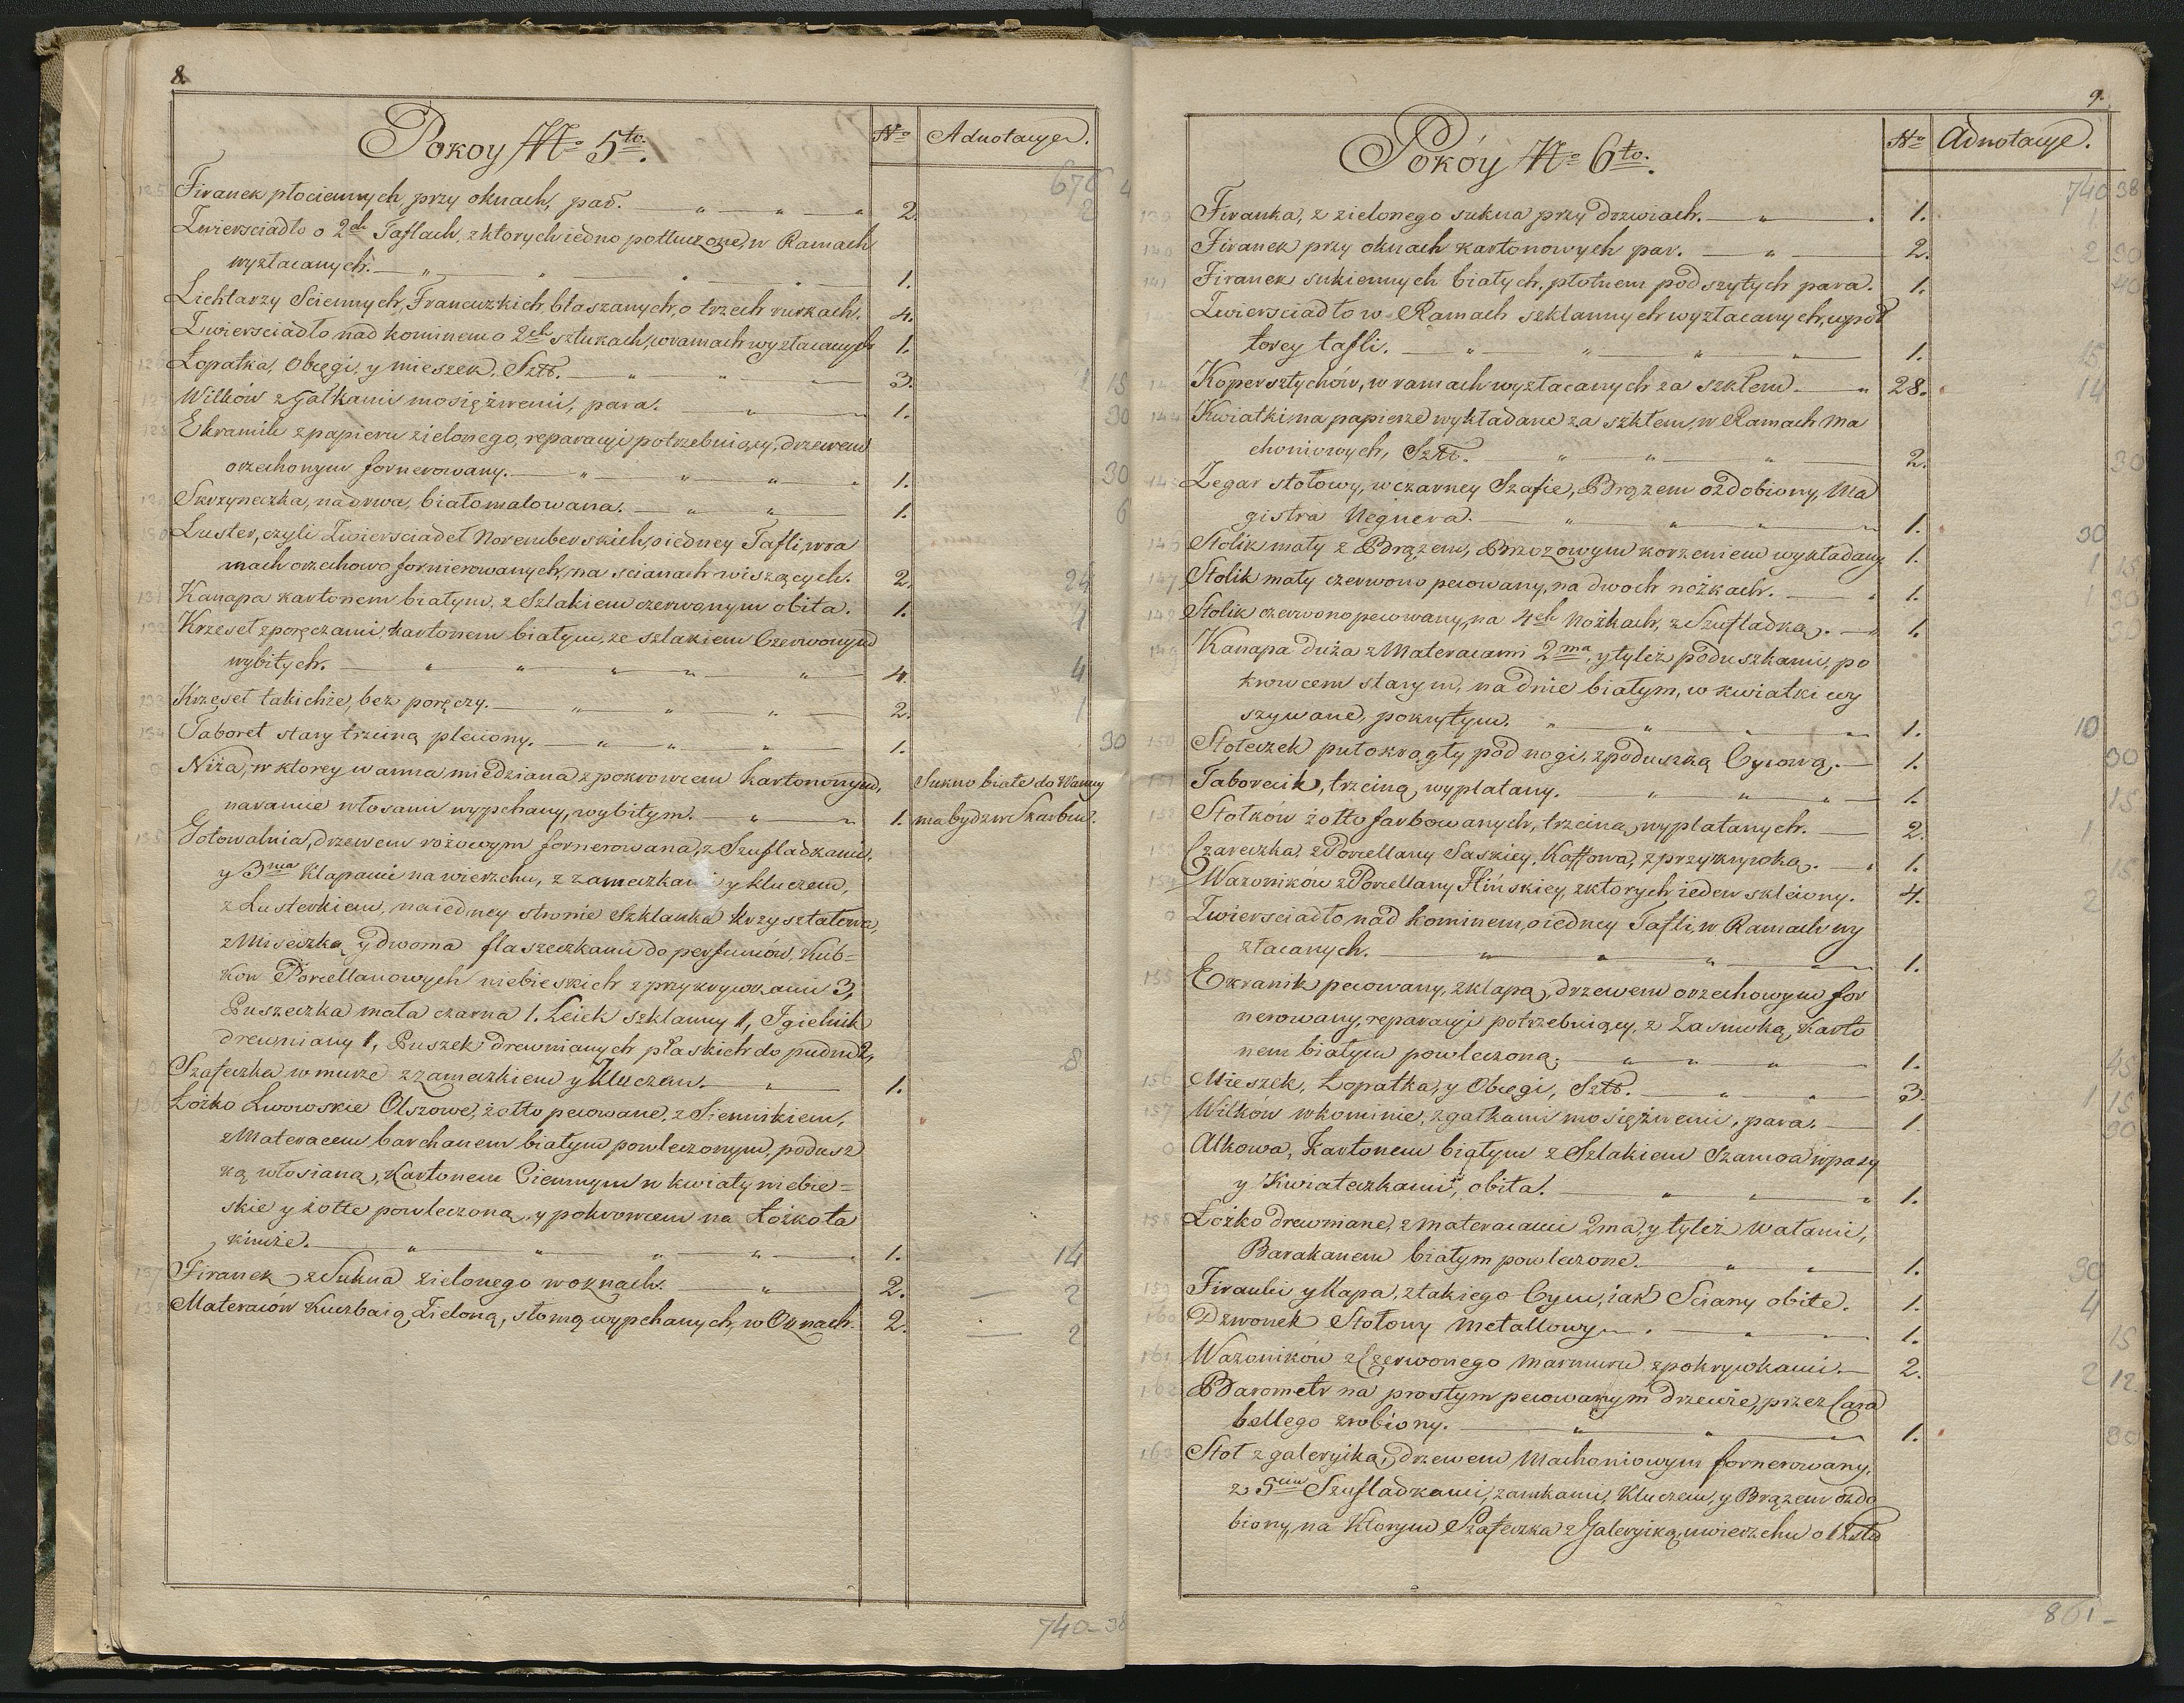 8.
Pokoy No 5to.
No
Adnotacye.
676 4
125 Firanek płociennych, przy oknach, par. 2. 2
Zwiersciadło o 2ch Taflach, z ktorych iedno potłuczone, w Ramach
wyzłacanych. 1.
Lichtarzy Sciennych, Francuzkich blaszanych, o trzech rurkach. 4.
Zwierciadło nad kominem o 2ch sztukach, w ramach wyzłacanych 1.
126 Łopatka, Obcęgi, y mieszek. Sztk. 3. 1 15
127 Wilków z Gałkami mosiężnemi, para. 1. 30
128 Ekranik z papieru zielonego, reparacyi potrzebuiący, drzewem
orzechowym fornerowany. 1. 30
129 Skrzyneczka, na drwa, biało malowana. 1. 6
130 Luster, czyli Zwierściadeł Noremberskich, o iedney Tafli, w ra
mach orzechowo fornierowanych, na scianach wiszących. 2. 24
131 Kanapa kartonem białym, z Szlakiem czerwonym obita. 1. 4
132 Krzeseł z poręczami, kartonem białym, ze szlakiem Czerwonym
wybitych. 4. 4
133 Krzeseł takichże, bez poręczy. 2. 1
134 Taboret stary trzciną pleciony. 1. 30
0 Niża, w ktorey wanna miedziana z pokrowcem kartonowym, Sukno białe do Wanny
na ramie włosami wypchany, wybitym. 1. ma bydz w Skarbcu.
135 Gotowalnia, drzewem rożowym fornerowana, z Szufladkami,
y 3ma Klapami na wierzchu, z zameczkami y kluczem,
z Lusterkiem, na iedney stronie Szklanka krzyształowa,
z Miseczką y dwoma flaszeczkami do perfumów, Kub=
kow Porcellanowych niebieskich z przykrywkami 3,
Puszeczka mała czarna 1. Leiek szklanny 1, Igielnik
drewniany 1, Puszek drewnianych płaskich do pudru 2, 8
0 Szafeczka w murze z zameczkiem y Kluczem. 1.
136 Łożko Lwowskie Olszowe, żołto pecowane, z Siennikiem,
z Materacem barchanem białym powleczonym, podusz
ką włosianą, Kartonem Ciemnym w kwiaty niebie=
skie y żołte powleczoną, y pokrowcem na Łożko ta
kimże. 1. 14
137 Firanek z Sukna zielonego w oknach. 2. 2
138 Materaców Kuczbaią Zieloną, słomą wypchanych, w Oknach. 2. 2
740-38
9.
Pokóy No 6to.
No
Adnotacye.
740 38
139 Firanka, z zielonego sukna przy drzwiach. 1. 1.
140 Firanek przy oknach kartonowych par. 2. 2 30
141 Firanek sukiennych białych, płotnem podszytych para. 1. 40
Zwierściadło w Ramach szklannych wyzłacanych, o poł
torey tafli. 1. 15
Kopersztychów, w ramach wyzłacanych za szkłem. 28. 14
144 Kwiatki na papierze wykładane za szkłem, w Ramach Ma
choniowych, Sztk. 2. 30
145 Zegar stołowy, w czarney Szafie, Brązem ozdobiony, Ma
gistra Negnera. 1. 30
146 Stolik mały z Brązem, Brzozowym korzeniem wykładany 1. 1 15
147 Stolik mały czerwono pecowany, na dwoch nożkach. 1. 1 30
148 Stolik czerwono pecowany, na 4ch Nożkach, z Szufladką. 1. 30
149 Kanapa duża z Materacami 2ma, y tyleż poduszkami, po
krowcem starym, na dnie białym, w kwiatki wy
szywane, pokrytym. 1. 10
150 Stołeczek pułokrągły pod nogi, z poduszką Cycową. 1. 30
151 Taborecik, trzciną wyplatany. 1. 15
152 Stołków żołto farbowanych, trzciną wyplatanych. 2. 1
153 Czareczka z Porcellany Saskiey, Kaffowa, z przykrywką. 1. 15
154 Wazoników z Porcellany Hińskiey, z ktorych ieden skleiony. 4. 2
0 Zwierściadło nad kominem, o iedney Tafli, w Ramach wy
złacanych. 1.
155 Ekranik pecowany, z klapą, drzewem orzechowym for
nerowany, reparacyi potrzebuiący, z Zasuwką, Karto
nem białym powleczoną. 1. 45
156 Mieszek, Łopatka, y Obcęgi, Sztk. 3. 1 15
157 Wilków w kominie, z gałkami mosiężnemi, para. 1. 30
0 Alkowa, Kartonem białym z Szlakiem Szamoa w pasy
y Kwiateczkami, obita. 1.
158 Łożko drewniane, z materacami 2ma, y tyleż Watami,
Barakanem białym powleczone. 1. 30
159 Firanki y Kapa, z takiego Cycu, iak Sciany obite. 1. 4
160 Dzwonek Stołowy Metallowy. 1. 15
161 Wazoników z Czerwonego marmuru z pokrywkami. 2. 2 12.
162 Barometr na prostym pecowanym drzewie, przez Cara
bellego zrobiony. 1. 30
163 Stoł z galeryiką, drzewem Machoniowym fornerowany,
z 5cią Szufladkami, zamkami, Kluczem, y Brązem ozdo
biony, na Ktorym Szafeczka z Galeryiką, u wierzchu o 12stu
861-